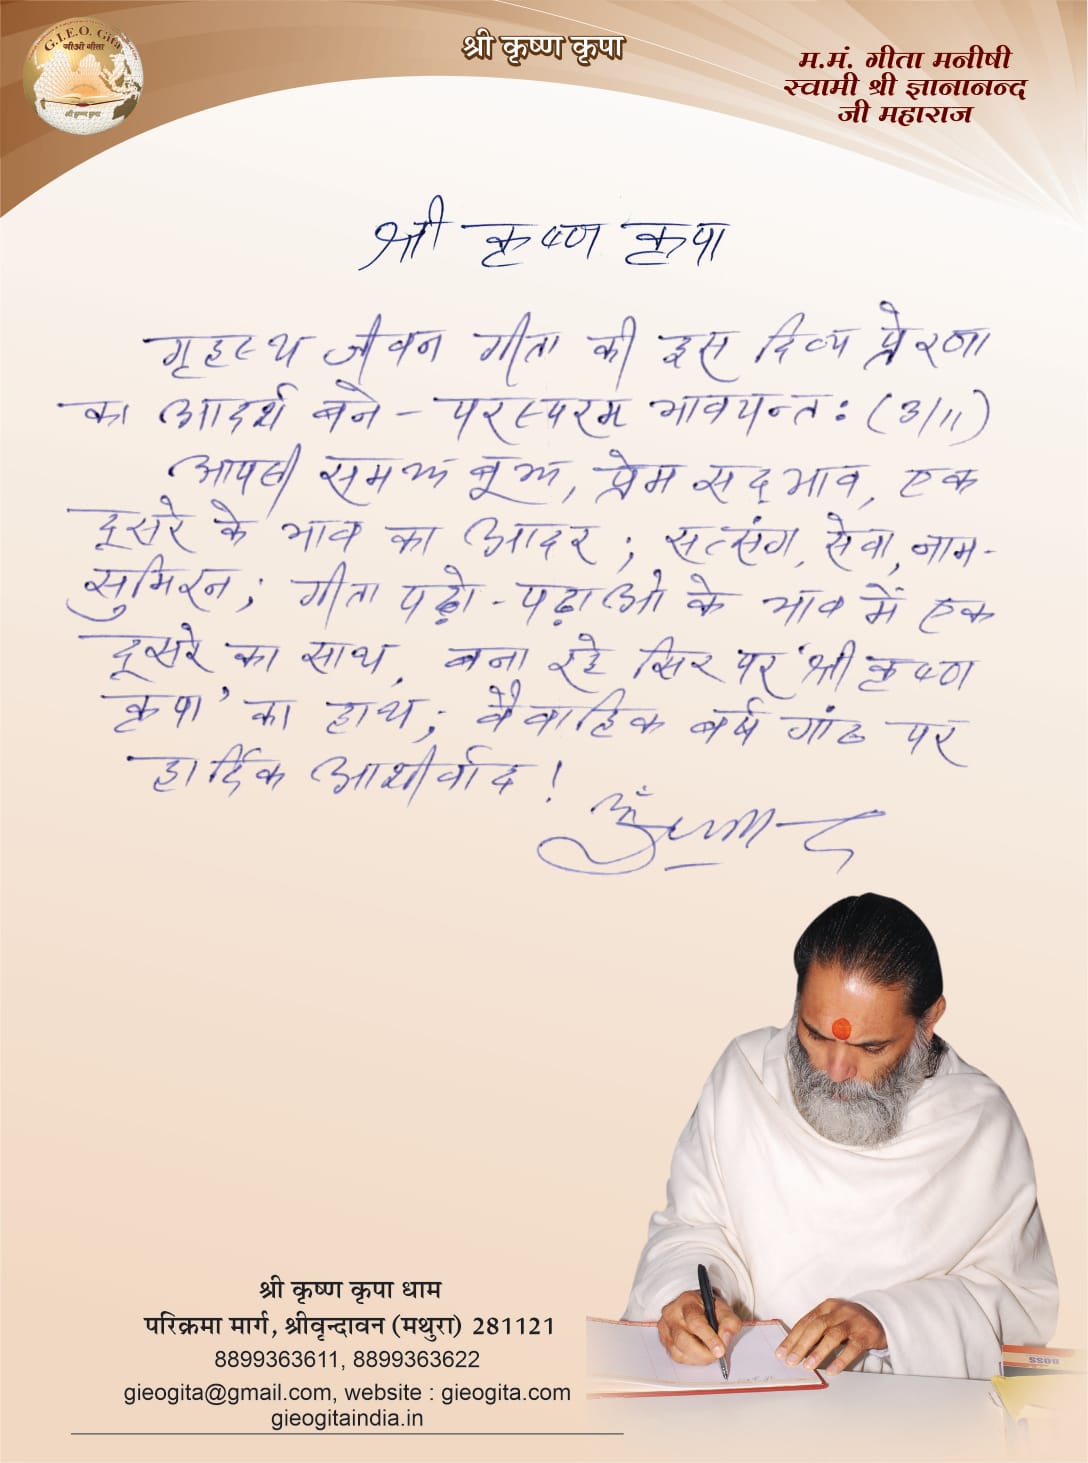 G.I.E.O. Gita
जीओ गीता
श्री कृष्ण कृपा
म.मं. गीता मनीषी
स्वामी श्री ज्ञानानन्द
जी महाराज
श्री कृष्ण कृपा
गृहस्थ जीवन गीता की इस दिव्य प्रेरणा
का आदर्श बने - परस्परम भावयन्त: (3/11)
आपसी समझ बूझ, प्रेम सद्भाव, एक
दूसरे के भाव का आदर ; सत्संग, सेवा, नाम-
सुमिरन ; गीता पढ़ो - पढ़ाओ के भाव में एक
दूसरे का साथ, बना रहे सिर पर 'श्री कृष्ण
कृपा' का हाथ ; वैवाहिक वर्ष गांठ पर
हार्दिक आशीर्वाद !
श्री कृष्ण कृपा धाम
परिक्रमा मार्ग, श्रीवृन्दावन (मथुरा) 281121
8899363611, 8899363622
gieogita@gmail.com, website : gieogita.com
gieogitaindia.in
BOSS